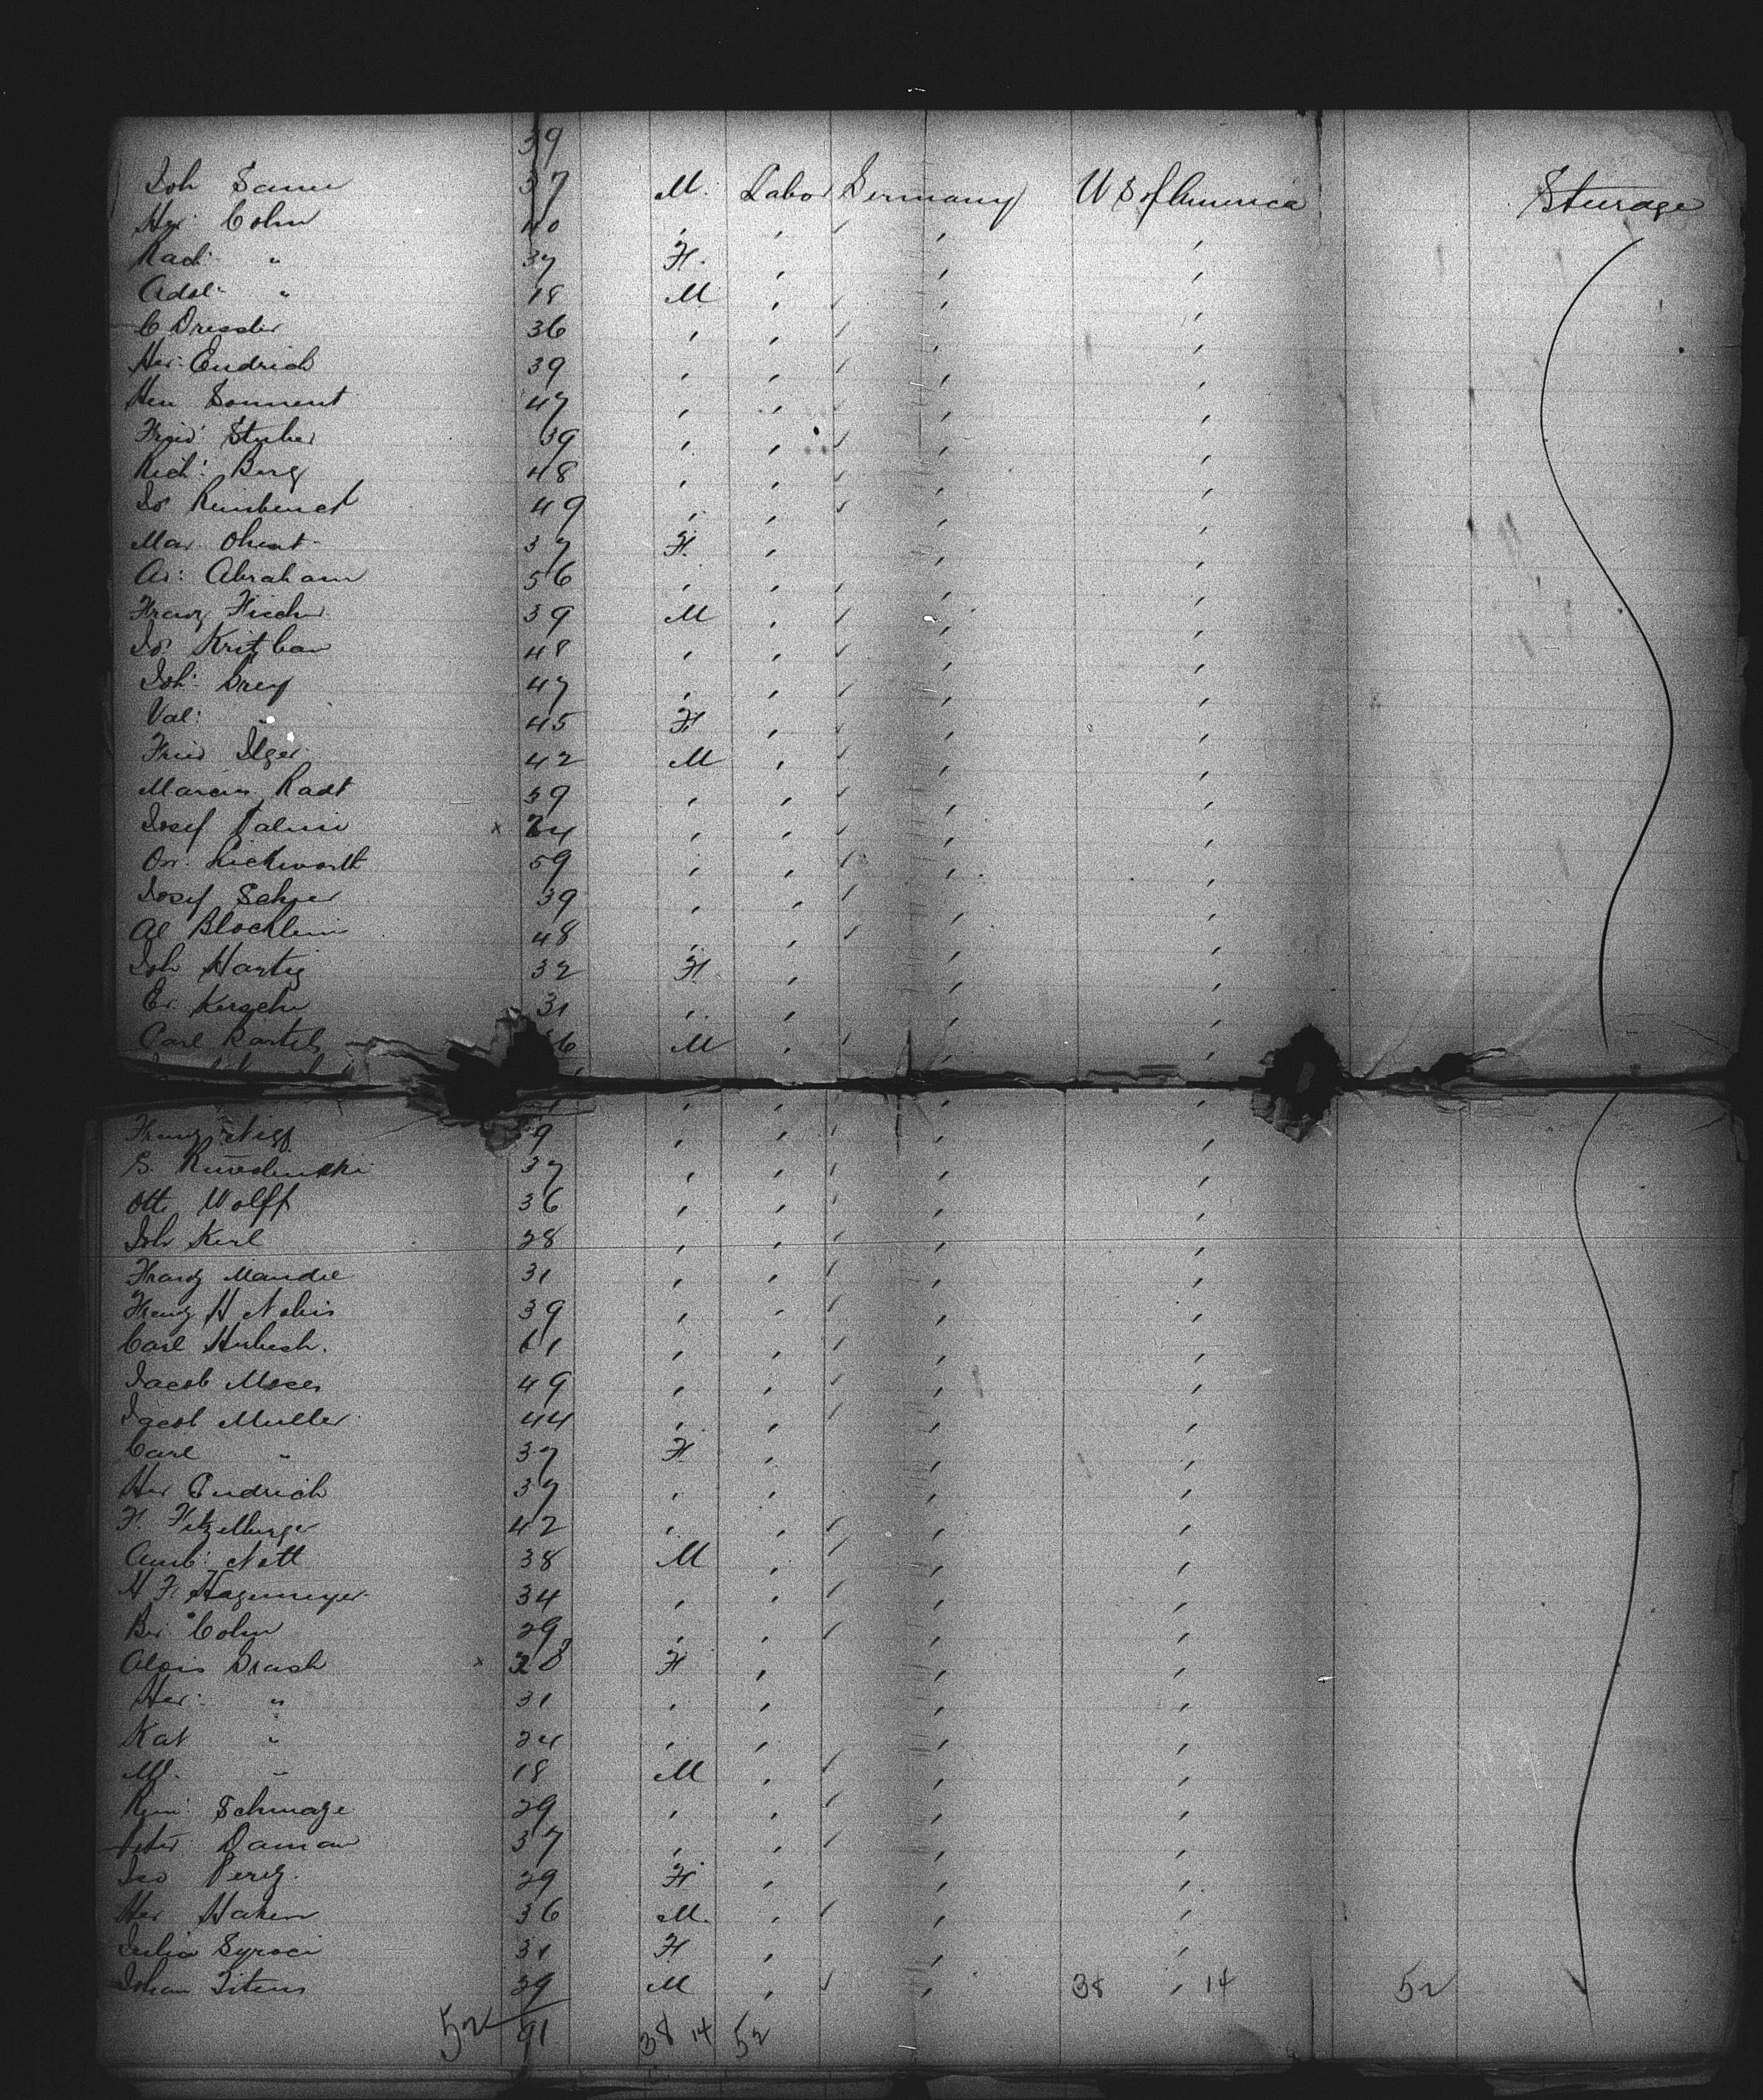 39
Joh 37 M. Labor Germany U S of America Steerage
Her: Cohn 40 , , ,
Rad: " 37 F. , , ,
Adol: " 18 M , , ,
C Dressler 36 , , , ,
Her: Endrich 39 , , , ,
Hen Sonnent 47 , , , ,
Fried: Stuber 39 , , , ,
Rich: Berg 48 , , , ,
Jos 49 , , , ,
Mar 37 F. , , ,
Ad: Abraham 56 , , , ,
Franz Fischer 39 M , , ,
Jos 48 , , , ,
Joh: Grey 47 , , , ,
Val: " 45 F , , ,
Fried Ilger 42 M , , ,
Marcus Radt 39 , , , ,
Josef x 24 , , , ,
59 , , , ,
Josef Scherer 39 , , , ,
Al Blochlein 48 , , , ,
Joh Hartig 32 F , , ,
Er. Kersche 31 , , , ,
Carl Bartels 36 M , , ,
, , , ,
Franz 39 , , , ,
S. 37 , , , ,
Otto Wolff 36 , , , ,
Joh Kerl 28 , , , ,
Franz Mandel 31 , , , ,
Franz H Nobis 39 , , , ,
Carl 61 , , , ,
Jacob Moses 49 , , , ,
Jacob Muller 44 , , , ,
Carl " 37 F , , ,
Her Endrich 37 , , , ,
F. Fitzelburger 42 , , , ,
Amb: Nett 38 M , , ,
H F. Hagemeyer 34 , , , ,
Ber Cohn 29 , , , ,
Alois Drash x 28 F , , ,
Her: " 31 , , , ,
Kat " 24 , , , ,
M. " 18 M , , ,
Schmage 29 , , , ,
Peter Daman 37 , , , ,
Perez 29 F , , ,
Her Haken 36 M. , , ,
Julia Syroci 31 F , , ,
Johan Titens 29 M , , , 38 14 52
52 91 38 14 52